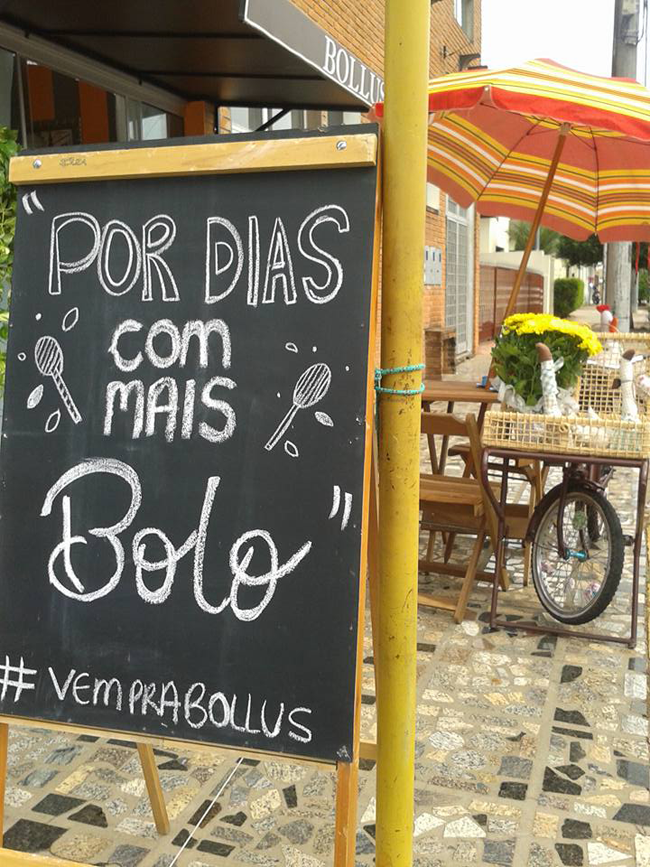 BOLLUS
"POR DIAS
COM
MAIS
Bolo"
#VEMPRABOLLUS